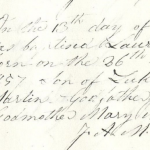 On the 13th day of
was baptized Laur
born on the 26th
1857 son of Luk
Martin - Godfather
Godmother Mary